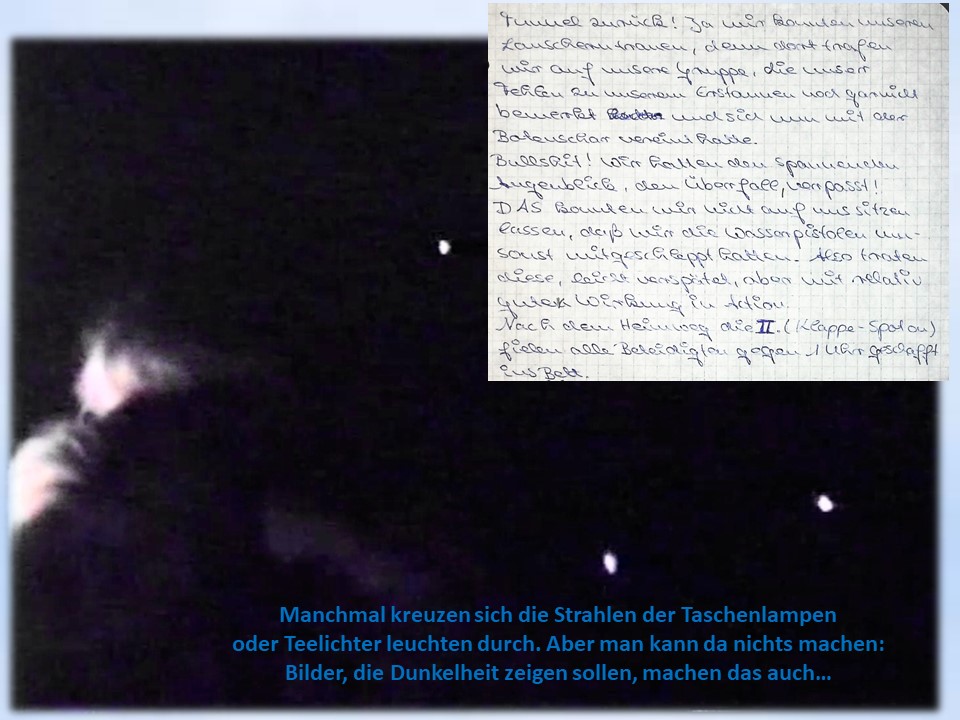 Tunnel zurück! Ja wir konnten unseren
Lauschern trauen, denn dort trafen
wir auf unsere Gruppe, die unser
Fehlen zu unserem Erstaunen noch garnicht
bemerkt und sich nun mit der
Botenschar vereint hatte.
Bullshit! Wir hatten den spannenden
Augenblick, den Überfall, verpasst!
DAS konnten wir nicht auf uns sitzen
lassen, daß wir die Wasserpistolen um-
sonst mitgeschleppt hatten. Also traten
diese, leicht verspätet, aber mit relativ
guter Wirkung in Action.
Nach dem Heimweg die II. (Klappe-Spaten)
fielen alle Beteiligten gegen 1 Uhr geschafft
ins Bett.
Manchmal kreuzen sich die Strahlen der Taschenlampen
oder Teelichter leuchten durch. Aber man kann da nichts machen:
Bilder, die Dunkelheit zeigen sollen, machen das auch...